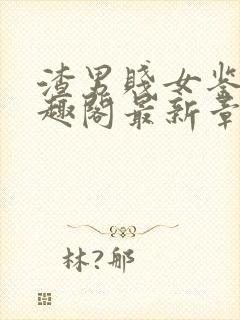 渣男贱女鉴
趣阁最新章
林?郍